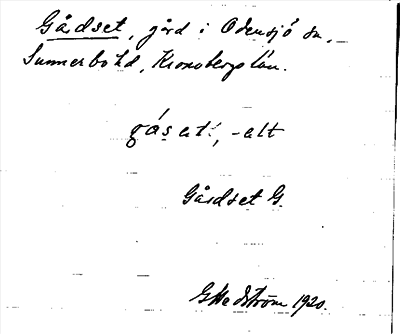 Gårdset, gård i Odensjö sn,
Sunnerbo hd, Kronobergs län.
gåsat, -alt
Gårdset G.
G Hedström 1920.